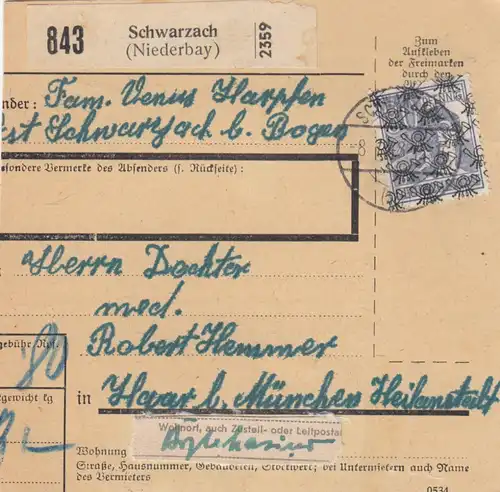 843
Schwarzach
(Niederbay)
2359
Zum
Aufkleben
der Freimarken
durch den
ender: Fam. Venus Harpfen
st Schwarzach b. Bogen
sondere Vermerke des Absenders (s. Rückseite):
Herrn Dochter
med.
Robert Hemmer
gebühr Rpf.
80
tgewicht kg
in Haar b. München Heilanstalt
Wohnort, auch Zustell- oder Leitpostar
Wohnung
Straße, Hausnummer, Gebäudeteil, Stockwerk; bei Untermietern auch Name
des Vermieters
0534